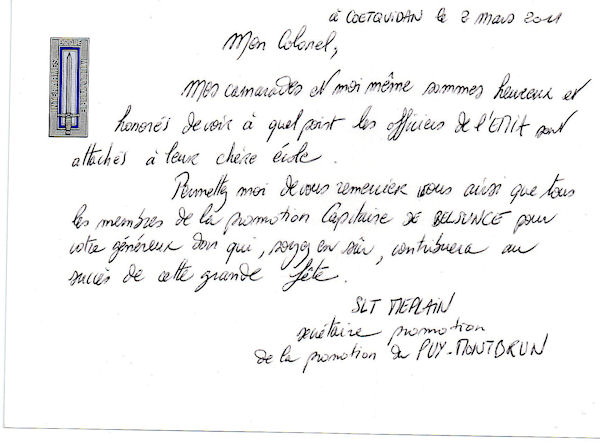 à COETQUIDAN le 2 mars 2011
Mon Colonel,
Mes camarades et moi même sommes heureux et
honorés de voir à quel point les officiers de l'EMIA sont
attachés à leur chère école.
Permettez moi de vous remercier vous ainsi que tous
les membres de la promotion Capitaine DE BELSUNCE pour
votre généreux don qui, soyez en sûr, contribuera au
succès de cette grande fête.
SLT
secrétaire promotion
de la promotion du PUY-MONTBRUN
ECOLE
INTERARMES